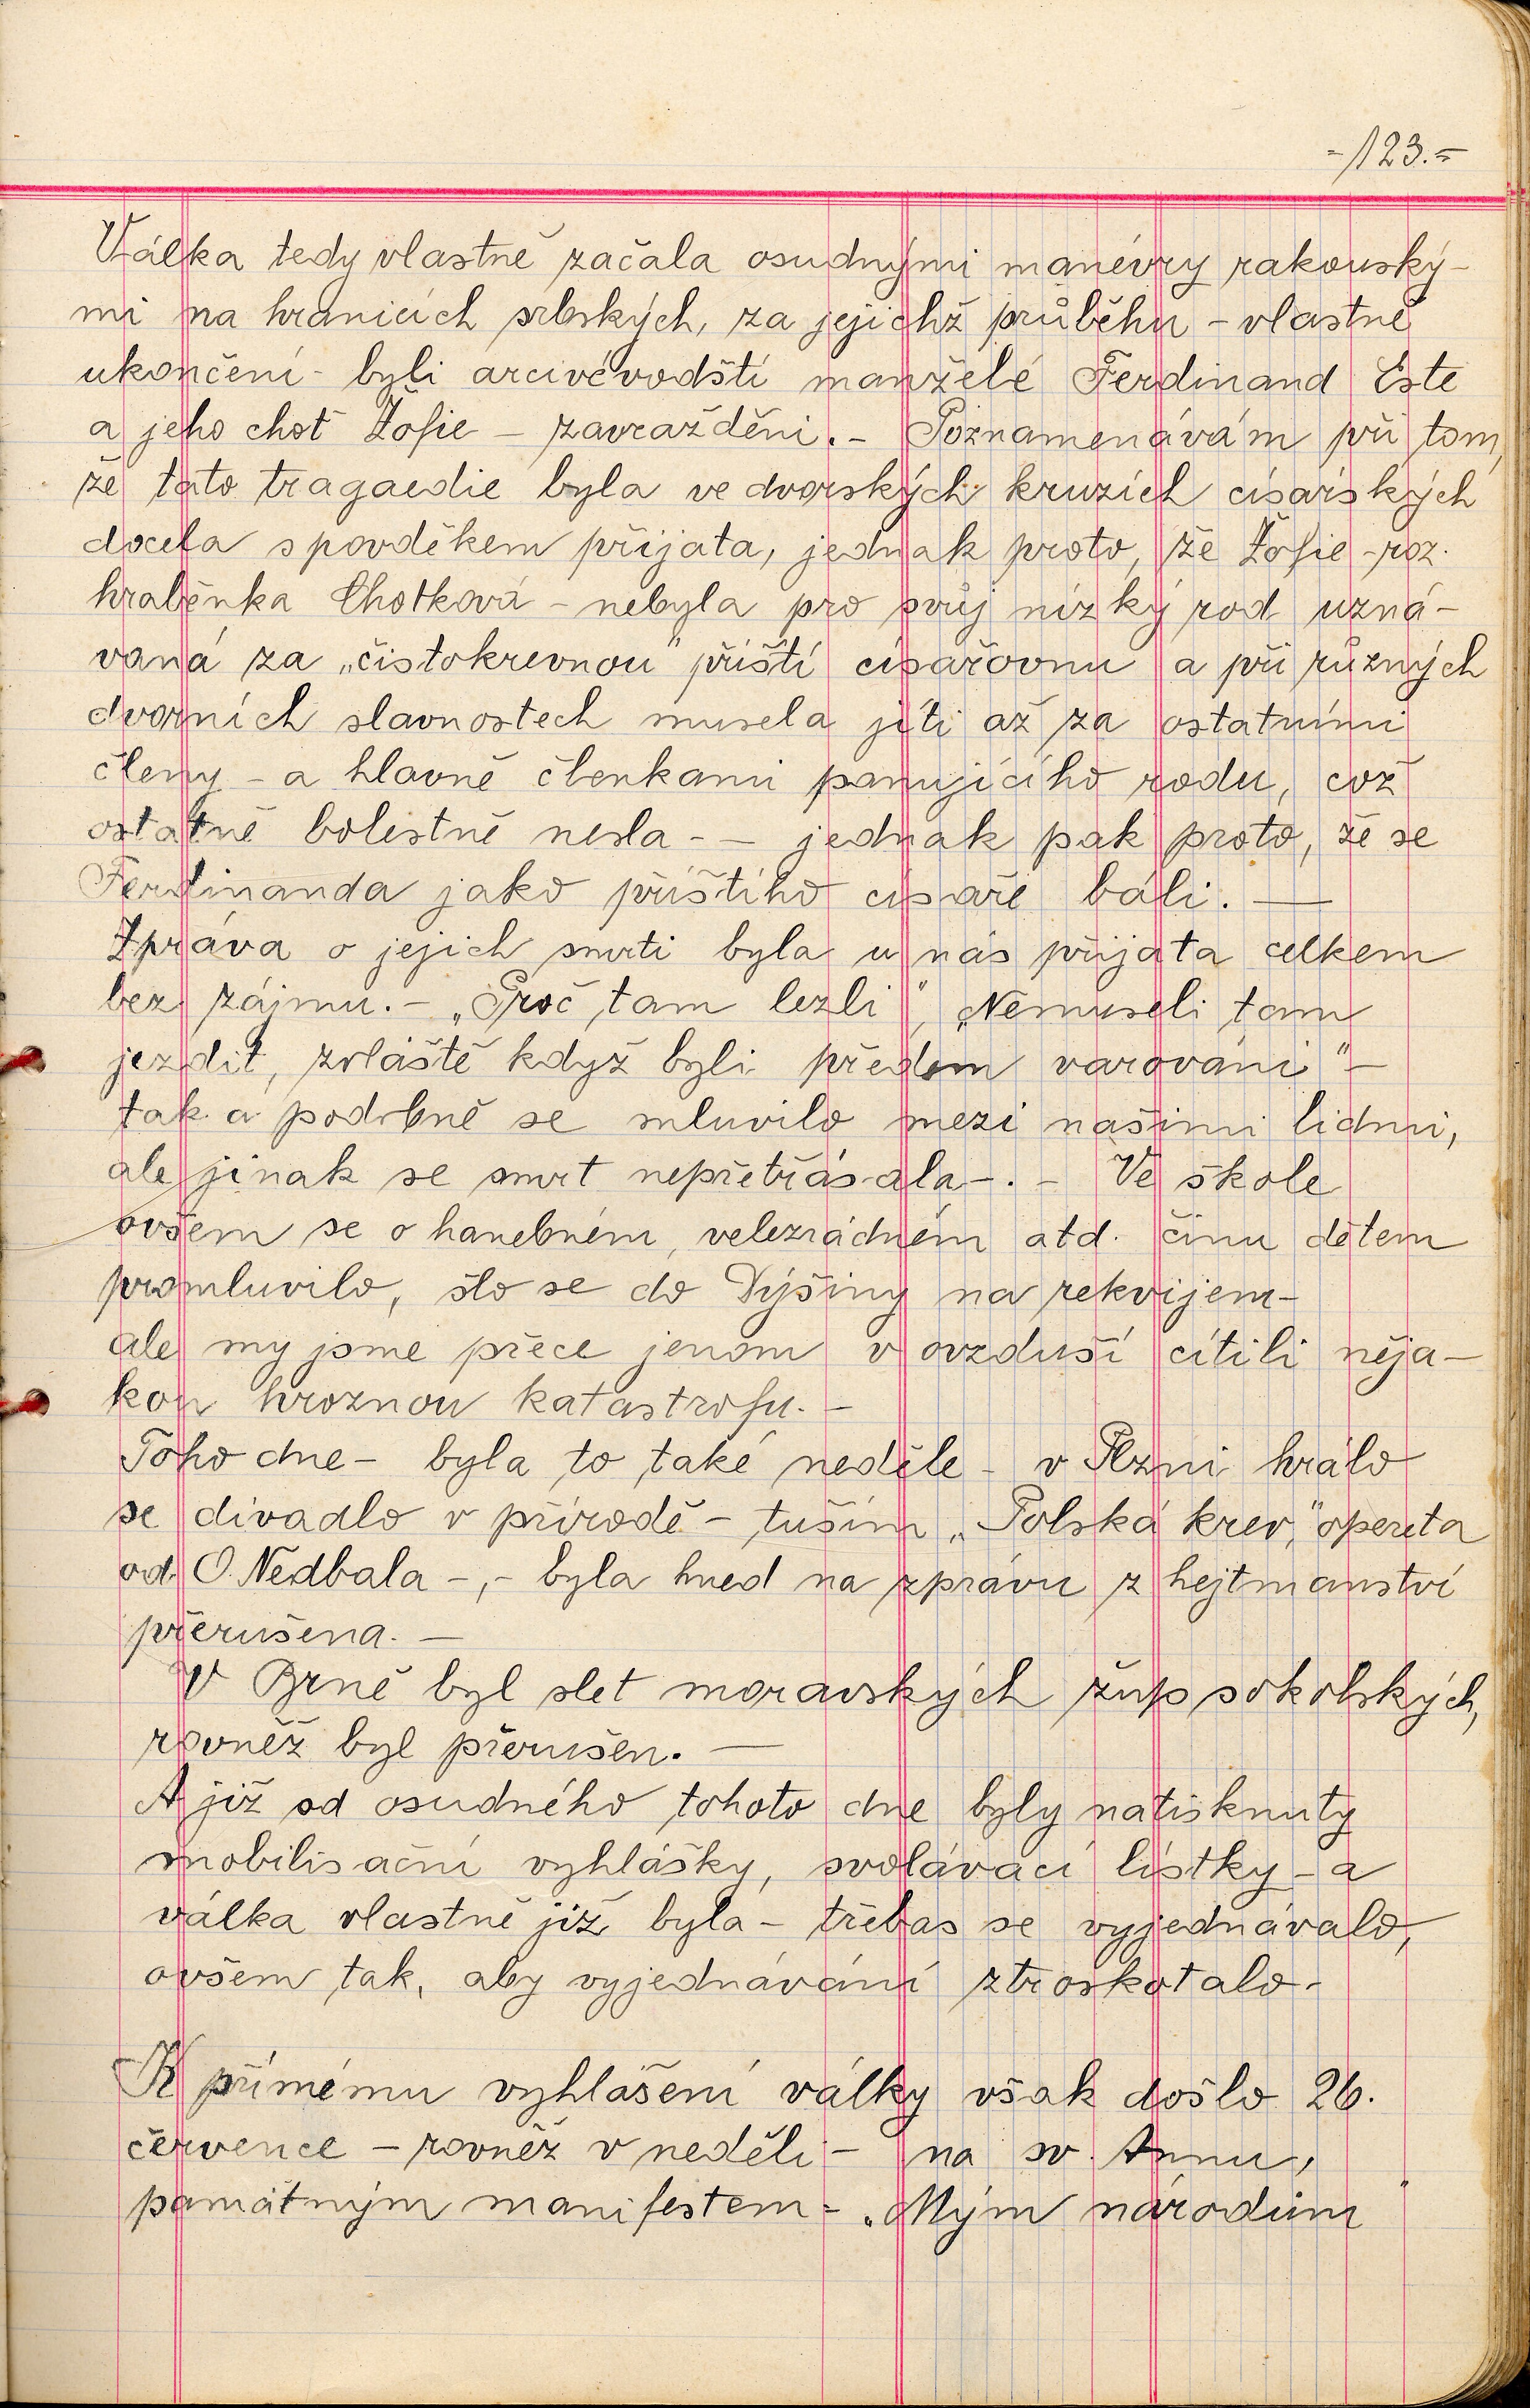 -123.-
Válka tedy vlastně začala osudnými manévry rakouský-
mi na hranicích srbských, za jejichž průběhu - vlastně
ukončení - byli arcivévodští manželé Ferdinand Este
a jeho choť Žofie - zavražděni. - Poznamenávám při tom,
že tato tragaedie byla ve dvorských kruzích císařských
docela s povděkem přijata, jednak proto, že Žofie - roz.
hraběnka Chotková - nebyla pro svůj nízký rod uzná-
vaná za „čistokrevnou" příští císařovnu a při různých
dvorních slavnostech musela jíti až za ostatními
členy - a hlavně členkami panujícího rodu, což
ostatně bolestně nesla - — jednak pak proto, že se
Ferdinanda jako příštího císaře báli. —
Zpráva o jejich smrti byla u nás přijata celkem
bez zájmu. - „Proč tam lezli", „Nemuseli tam
jezdit, zvláště když byli předem varováni" -
tak a podobně se mluvilo mezi našimi lidmi,
ale jinak se smrt nepřetřásala -. - Ve škole
ovšem se o hanebném, velezrádném atd. činu dětem
promluvilo, šlo se do Dýšiny na rekvijem -
ale my jsme přece jenom v ovzduší cítili něja-
kou hroznou katastrofu. -
Toho dne - byla to také neděle - v Plzni hrálo
se divadlo v přírodě - tuším „Polská krev," opereta
od O. Nedbala -, - byla hned na zprávu z hejtmanství
přerušena. —
V Brně byl slet moravských žup sokolských,
rovněž byl přerušen. —
A již od osudného tohoto dne byly natisknuty
mobilisační vyhlášky, svolávací lístky - a
válka vlastně již byla - třebas se vyjednávalo,
ovšem tak, aby vyjednávání ztroskotalo -
K přímému vyhlášení války však došlo 26.
července - rovněž v neděli - na sv. Annu,
památným manifestem - „Mým národům"